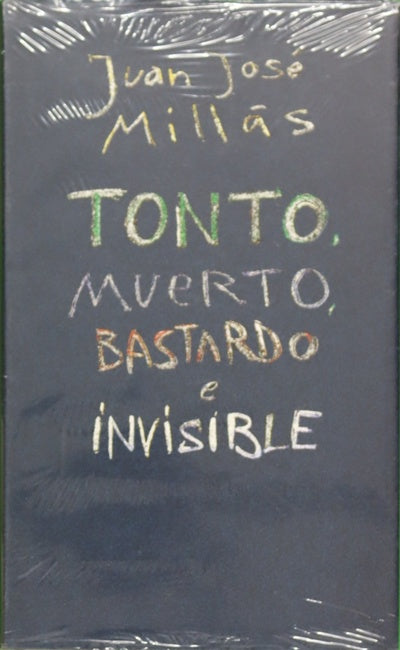 Juan José
Millás
TONTO,
MUERTO,
BASTARDO
e
INVISIBLE